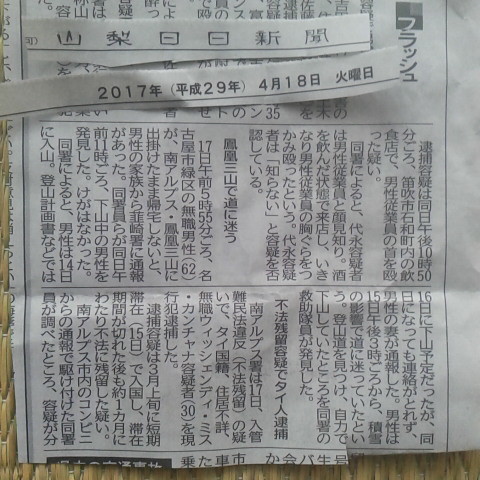 フラッシュ
山梨日日新聞
2017年（平成29年）4月18日 火曜日
逮捕容疑は同日午後10時50
分ごろ、笛吹市石和町内の飲
食店で、男性従業員の首を殴
った疑い。
同署によると、代永容疑者
は男性従業員と顔見知り。酒
を飲んだ状態で来店し、いき
なり男性従業員の胸ぐらをつ
かみ殴ったという。代永容疑
者は「知らない」と容疑を否
認している。
鳳凰三山で道に迷う
17日午前5時55分ごろ、名
古屋市緑区の無職男性（62）
が、南アルプス・鳳凰三山に
出掛けたまま帰宅しないと、
男性の家族から韮崎署に通報
があった。同署員らが同日午
前11時ごろ、下山中の男性を
発見した。けがはなかった。
同署によると、男性は14日
に入山。登山計画書などでは
16日に下山予定だったが、同
日になっても連絡がとれず、
男性の妻が通報した。男性は
15日午後3時ごろから、積雪
の影響で道に迷っていたとい
う。登山道を見つけ、自力で
下山していたところを同署の
救助隊員が発見した。
不法残留容疑でタイ人逮捕
南アルプス署は17日、入管
難民法違反（不法残留）の疑
いで、タイ国籍、住居不詳、
無職ウィッシェンディ・ミス
・カンチャナ容疑者（30）を現
行犯逮捕した。
逮捕容疑は3月上旬に短期
滞在（15日）で入国し、滞在
期間が切れた後も約1カ月に
わたり不法に残留した疑い。
南アルプス市内のコンビニ
からの通報で駆け付けた同署
員が調べたところ、容疑が分